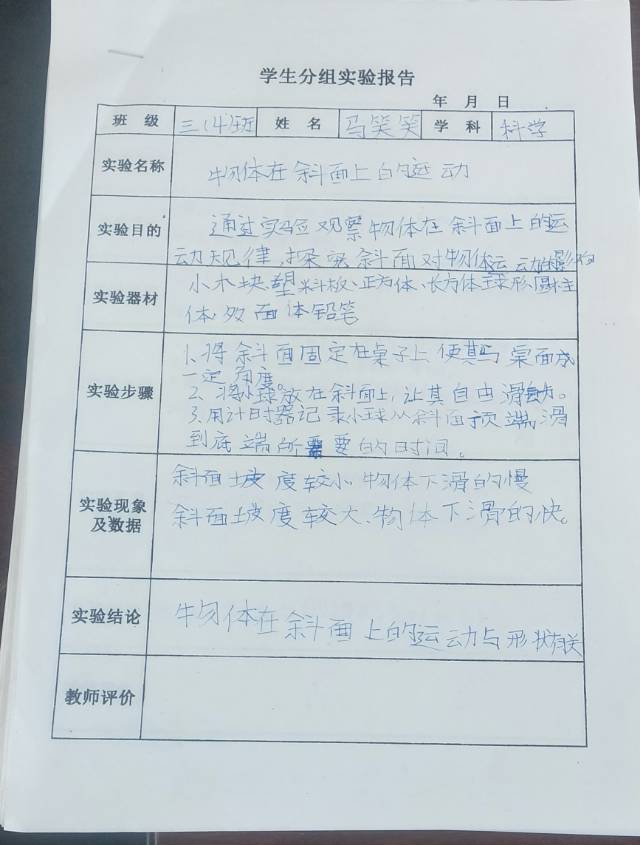 学生分组实验报告
年 月 日
班 级 三、(4)班 姓 名 马笑笑 学 科 科学
实验名称 物体在斜面上的运动
实验目的 通过实验观察物体在斜面上的运
动规律,探究斜面对物体运动的影响
实验器材 小木块、塑料板、正方体、长方体球形圆柱
体、双面体铅笔
实验步骤 1、将斜面固定在桌子上使其与桌面成
一定角度。
2、将小球放在斜面上,让其自由滑动。
3、用计时器记录小球从斜面顶端滑
到底端所需要的时间。
实验现象及数据 斜面坡度较小物体下滑的慢
斜面坡度较大、物体下滑的快。
实验结论 物体在斜面上的运动与形状有关
教师评价